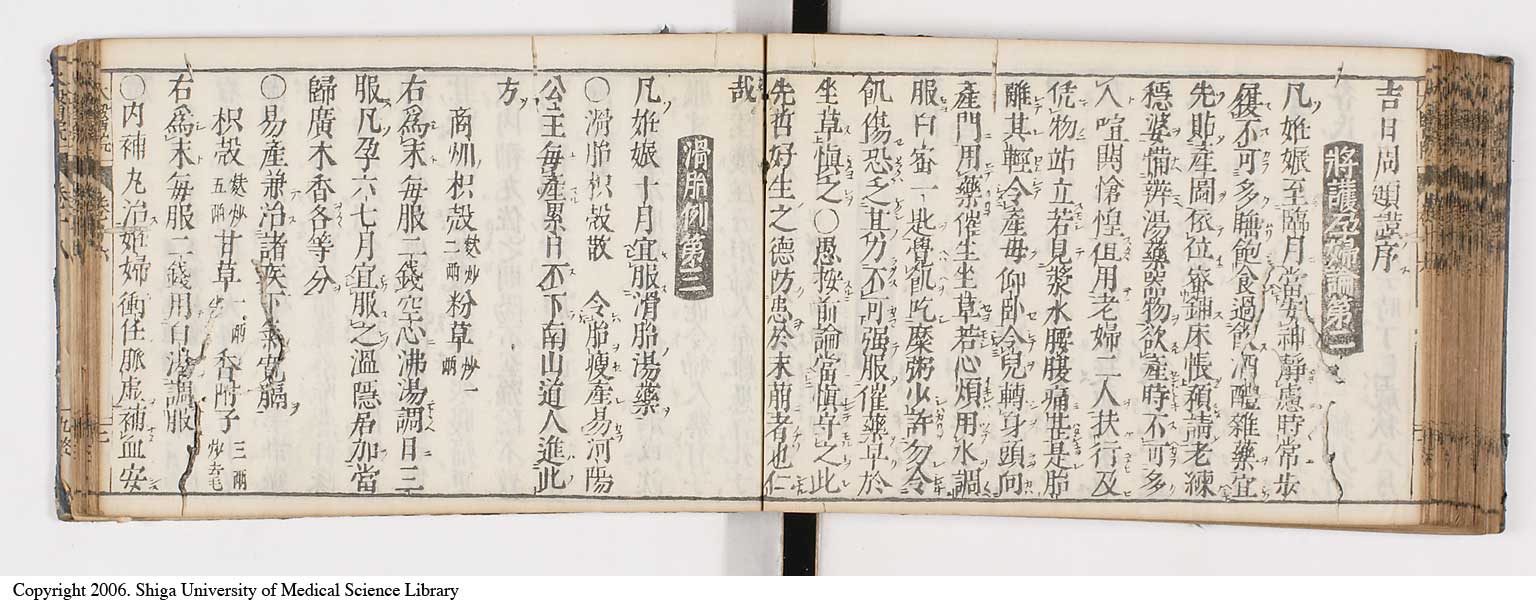 吉日周頲謹序
將護孕婦論第二
凡姙娠至臨月當安神靜慮時常步
履不可多睡飽食過飲酒醴雜藥宜
先貼產圖依位密鋪床帳預請老練
穩婆備辨湯藥器物欲產時不可多
人喧鬨愴惶但用老婦二人扶行及
凭物站立若見漿水腰腹痛甚是胎
離其輕令產母仰卧令兒轉身頭向
產門用藥催生坐草若心煩用水調
服白蜜一匙覺飢吃糜粥少許勿令
飢傷恐乏其力不可强服催藥早於
坐草慎之〇愚按前論當慎守之此
先哲好生之德防患於未萠者也仁
哉
滑胎例第三
凡姙娠十月宜服滑胎湯藥
〇滑胎枳殼散　令胎瘦產易河陽
公主每產累日不下南山道人進此
方
商州枳殼二兩麩炒粉草炒一兩
右爲末每服二錢空心沸湯調日三
服凡孕六七月宜服之溫隱居加當
歸廣木香各等分
〇易產兼治諸疾下氣寬膈
枳殼五兩麩炒甘草一兩香附子三兩炒去毛
右爲末每服二錢用白湯調服
〇內補丸治姙婦衝任脈虛補血安